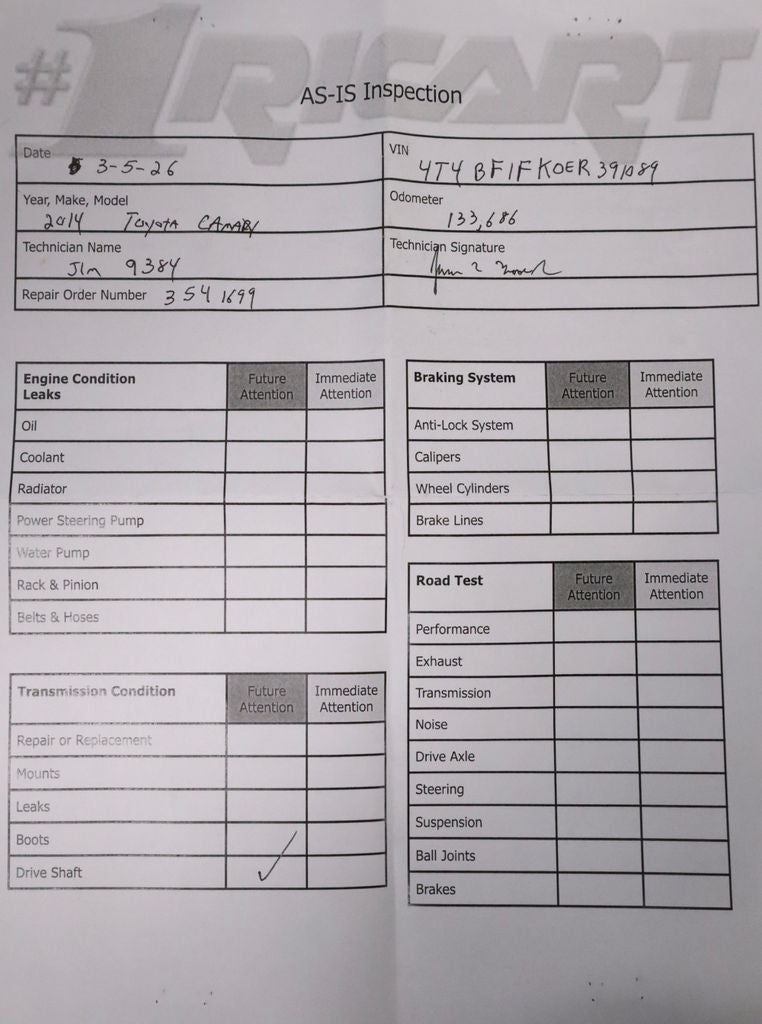 #1 RICART
AS-IS Inspection
Date 3-5-26
VIN 4T4BF1FK0ER391089
Year, Make, Model 2014 Toyota CAMARY
Odometer 133,686
Technician Name JIM 9384
Technician Signature
Repair Order Number 3541699
Engine Condition Leaks Future Attention Immediate Attention
Oil
Coolant
Radiator
Power Steering Pump
Water Pump
Rack & Pinion
Belts & Hoses
Transmission Condition Future Attention Immediate Attention
Repair or Replacement
Mounts
Leaks
Boots
Drive Shaft ✓
Braking System Future Attention Immediate Attention
Anti-Lock System
Calipers
Wheel Cylinders
Brake Lines
Road Test Future Attention Immediate Attention
Performance
Exhaust
Transmission
Noise
Drive Axle
Steering
Suspension
Ball Joints
Brakes